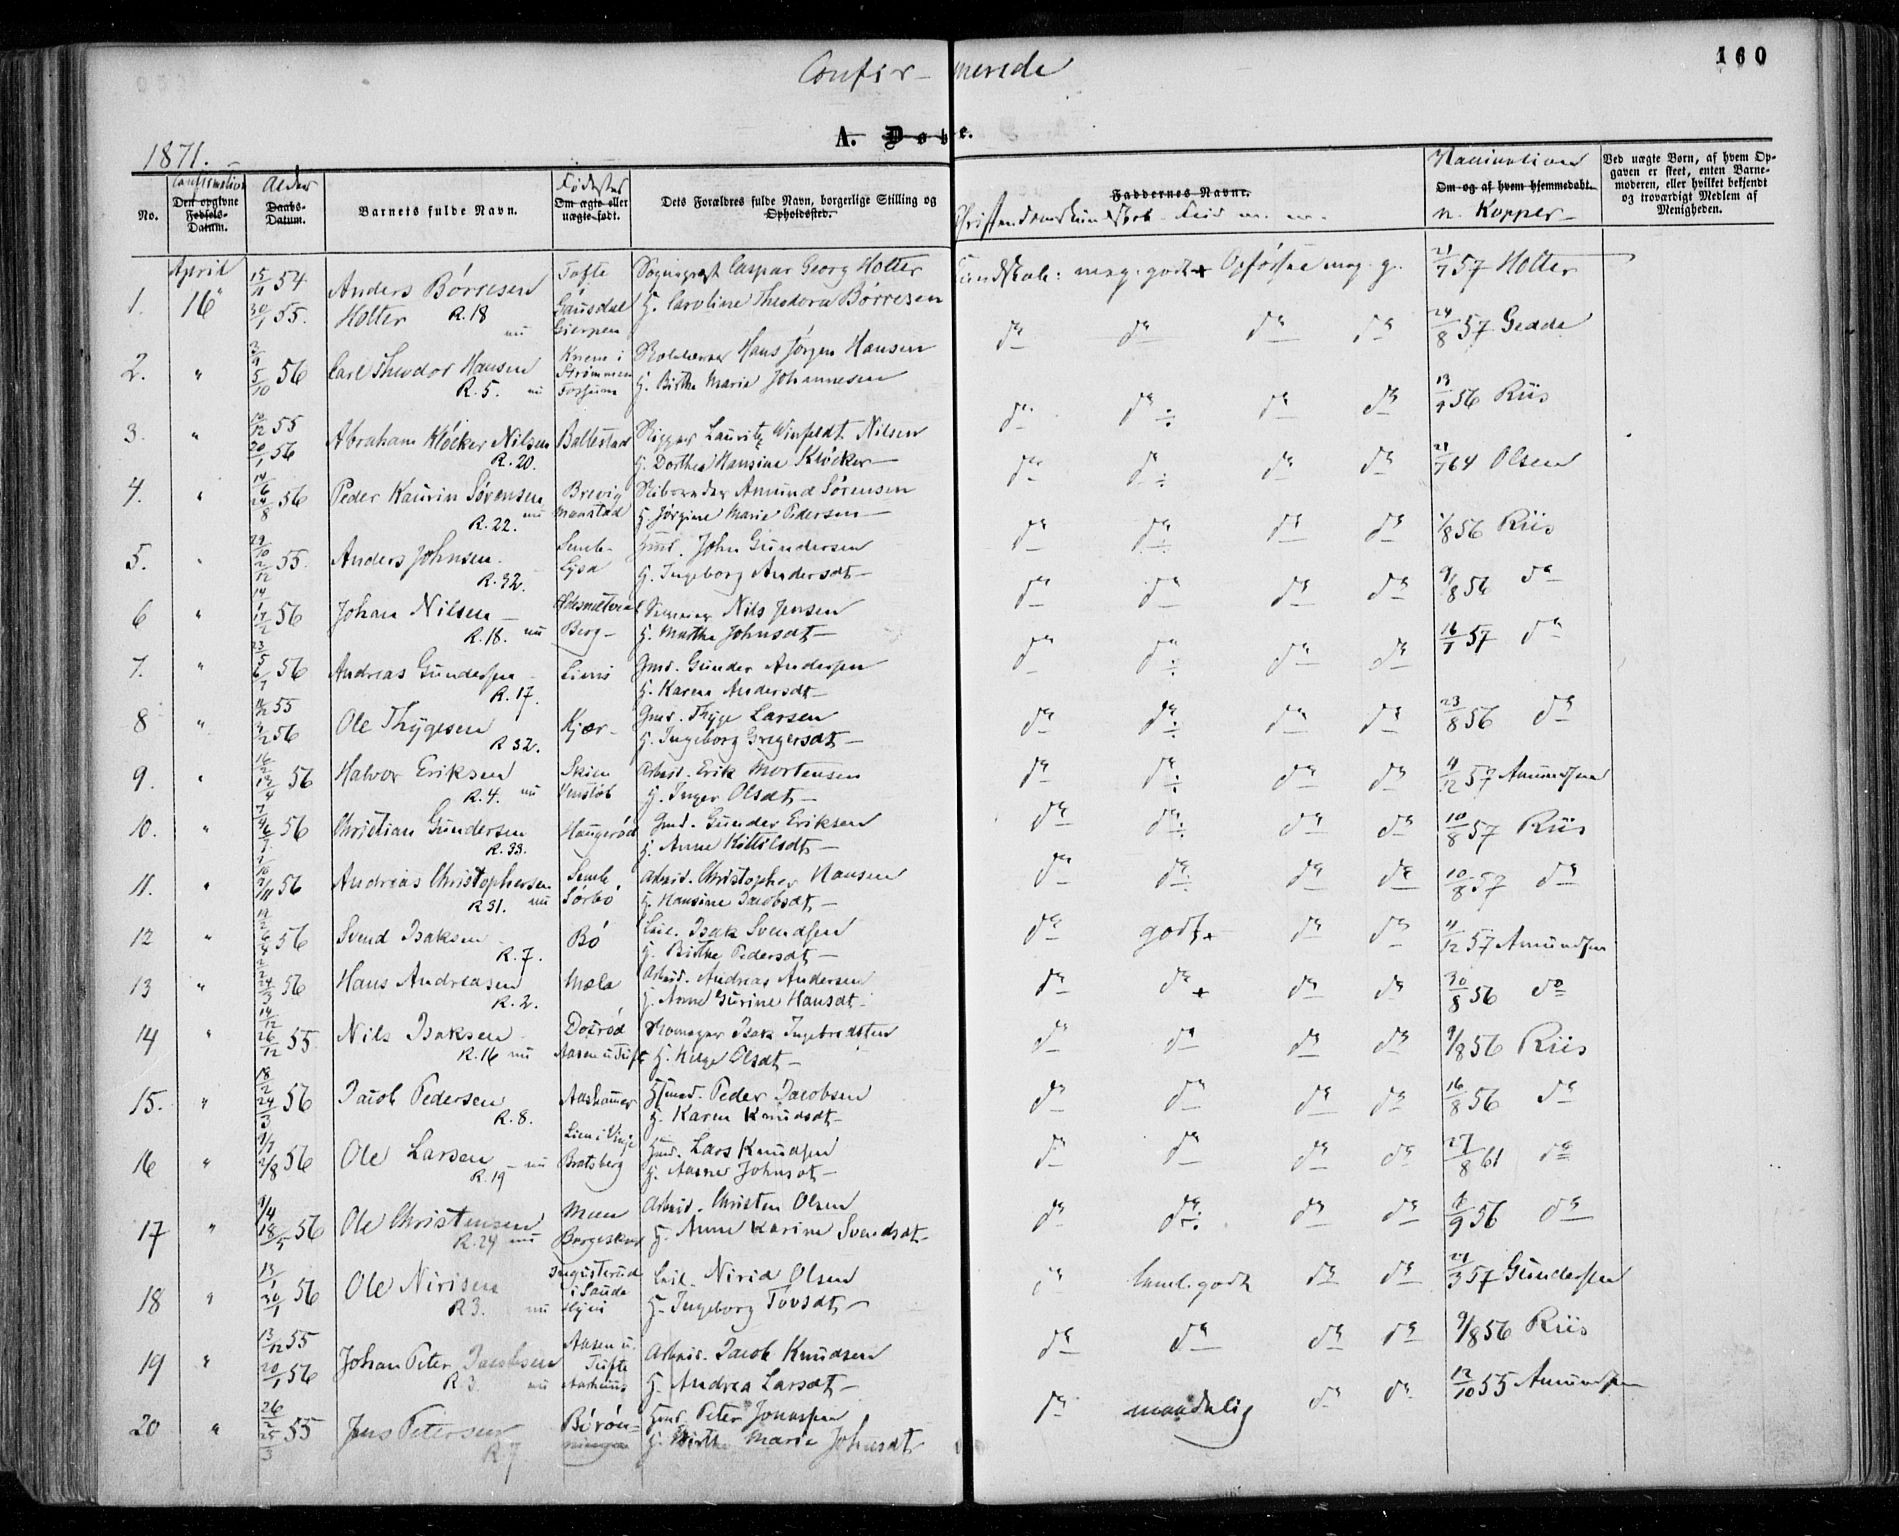 160
Confir-merede
A. Døbte.
1871.
No.
Confirmation
Den opgivne Fødsels-Datum.
Alder
Daabs-Datum.
Barnets fulde Navn.
Fødested
Om ægte eller uægte født.
Dets Forældres fulde Navn, borgerlige Stilling og Opholdssted.
Faddernes Navne.
Christendomskundskab. Flid m. m.
Vaccination
Om og af hvem hjemmedøbt.
n. Kopper
Ved uægte Børn, af hvem Opgaven er skeet, enten Barnemoderen, eller hvilket bekjendt og troværdigt Medlem af Menigheden.
April
1. 16 15/11 54 30/1 55. Anders Børresen Holter R. 18 nu Tofte Gausdal Gjerpen Sognepræst Caspar Georg Holter H. Caroline Theodora Børresen Kundskab: meg. godt + Opførsel meg. g. 21/7 57 Holter
2. " 5/10 56 Carl Theodor Hansen R. 5. nu i Strømmen Fossum Hans Jørgen Hansen H. Birthe Marie Johannesen do do do do 24/8 57 Gedde
3. " 12/12 55 20/1 56 Abraham Kløcker Nilsen R. 20. Ballestad Rigger Lauritz Winfeldt Nilsen H. Dorthea Hansine Kløcker do do ÷ do do 13/9 56 Riis
4. " 14/6 24/8 56 Peder Kaurin Sørensen R. 22. nu Brevig Mæstad Skibsreder Amund Sørensen H. Jørgine Marie Pedersen do do ÷ do do 21/7 64 Olsen
5. " 29/10 2/12 55. Anders Johnsen R. 32. Semb- Lysa John Gundersen H. Ingeborg Andersdt do do ÷ do do 1/8 56 Riis
6 " 17/2 56 Johan Nilsen R. 18. nu Berg Nils Jensen H. Marthe Johnsdt do do do do 9/8 56 do
7. " 23/5 6/7 56 Andreas Gundersen R. 17. Limi Gmd. Gunder Andersen H. Karen Andersdt do do ÷ do do 16/7 57 do
8 " 11/12 55 3/2 56 Ole Thygesen R 32. Kjær Gmd. Thyge Larsen H. Ingeborg Gregersdt do do ÷ do do 23/8 56 do
9. " 16/2 13/4 56 Halvor Eriksen R. 4. nu Skien Venstøb Arbeid. Erik Mortensen H. Inger Olsdt do do ÷ do do 11/12 57 Amundsen
10. " 56 Christian Gundersen R. 33. Haugerød Gmd. Gunder Eriksen H. Anne Kittilsdt do do ÷ do do 10/8 57 Riis
11. " 56 Andreas Christophersen R 31. nu Semb Sørbø Arbeid. Christopher Hansen H. Hansine Jacobsdt do do ÷ do do 10/8 57 do
12 " 56 Svend Isaksen R. 7. Bø Leil. Isak Svendsen H. Birthe Pedersdt do godt + do do 11/12 57 Amundsen
13 " 24/3 56 Hans Andreasen R. 2. Mæla Arbeid. Andreas Andersen H. Anne Gurine Hansdt do do + do do 30/8 56 do
14 " 14/12 26/12 55 Nils Isaksen R. 16 nu Dolrød Aasen u. Tufte Skomager Isak Ingebredtsen H. Helge Olsdt do do do do 9/8 56 Riis
15. " 18/2 24/3 56 Jacob Pedersen R. 8. Aashammer Hsmd. Peder Jacobsen H. Karen Knudsdt do do do do 16/8 56 do
16 " 9/7 2/8 56 Ole Larsen R. 19 nu Lien i Vinje Bratsberg Gmd. Lars Knudsen H. Aasne Johnsdt do do do do 27/8 61 do
17 " 9/4 18/5 56 Ole Christensen R. 24 nu Moen Borgeskov Arbeid. Christen Olsen H. Anne Karine Svendsdt do do ÷ do do 8/9 56 do
18 " 13/1 20/1 56 Ole Nirisen R 3. nu i Saude Leil. Nirid Olsen H. Ingeborg Tovsdt do temel. godt do do 21/3 57 Gundersen
19 " 13/12 55 20/1 56 Johan Peter Jacobsen R. 3. nu Aasen u. Tufte Aarhuus Arbeid. Jacob Knudsen H. Andrea Larsdt do do do do 9/8 56 Riis
20 " 26/2 25/3 55 Jens Petersen R. 7 Børøn- ningen Gmd. Peter Jonassen H. Birthe Marie Johnsdt do maadelig do do 12/10 55 Amundsen